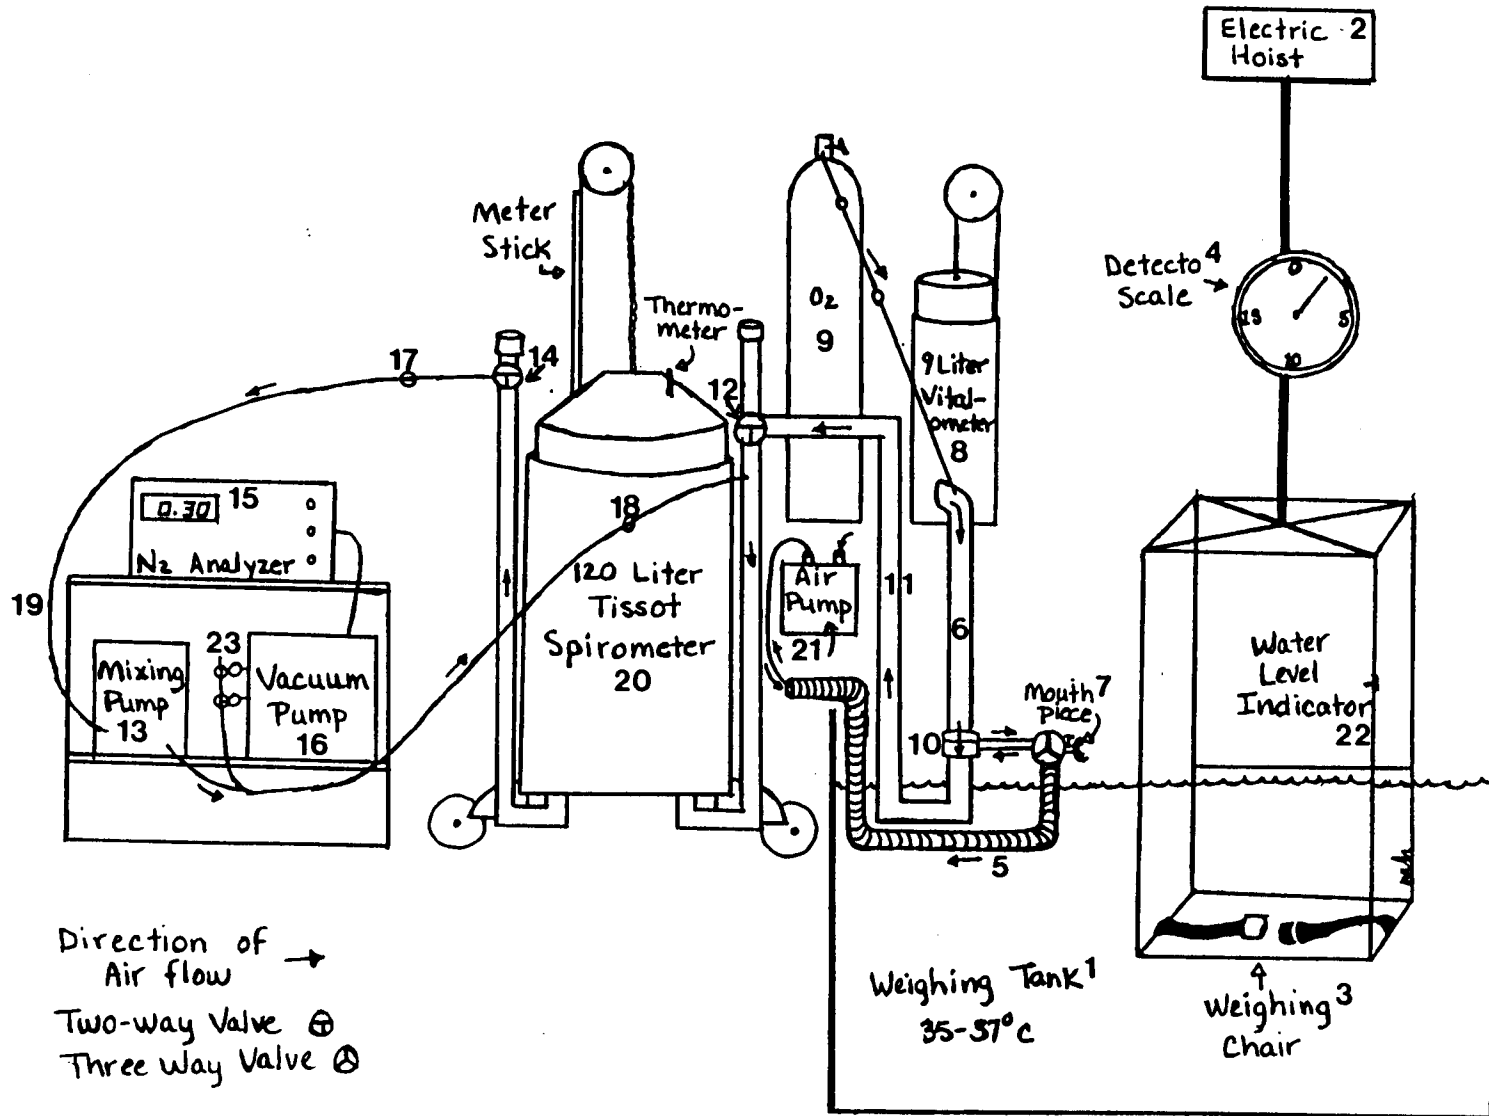 Electric 2
Hoist
Meter
Stick
Thermo-
meter
Detecto 4
Scale
0
5
10
15
O2
9
17
14
12
9 Liter
Vital-
ometer
8
0.30
15
N2 Analyzer
18
120 Liter
Tissot
Spirometer
20
Air
Pump
21
11
6
19
23
Mixing
Pump
13
Vacuum
Pump
16
Mouth 7
piece
10
5
Water
Level
Indicator
22
Direction of
Air flow
Two-way Valve
Three Way Valve
Weighing Tank 1
35-37°C
Weighing 3
Chair